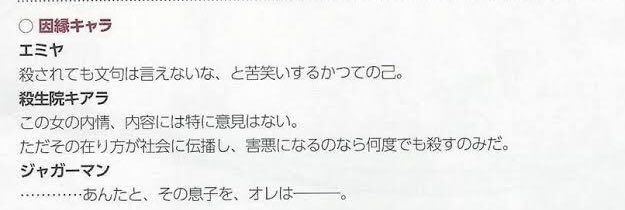 ○ 因縁キャラ
エミヤ
殺されても文句は言えないな、と苦笑いするかつての己。
殺生院キアラ
この女の内情、内容には特に意見はない。
ただその在り方が社会に伝播し、害悪になるのなら何度でも殺すのみだ。
ジャガーマン
…………あんたと、その息子を、オレは―――。